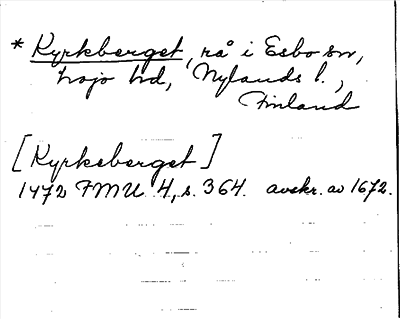 * Kyrkberget, rå i Esbo sn,
Lojo hd, Nylands l.,
Finland
[Kyrkeberget]
1472 FMU 4, s. 364. avskr. av 1672.